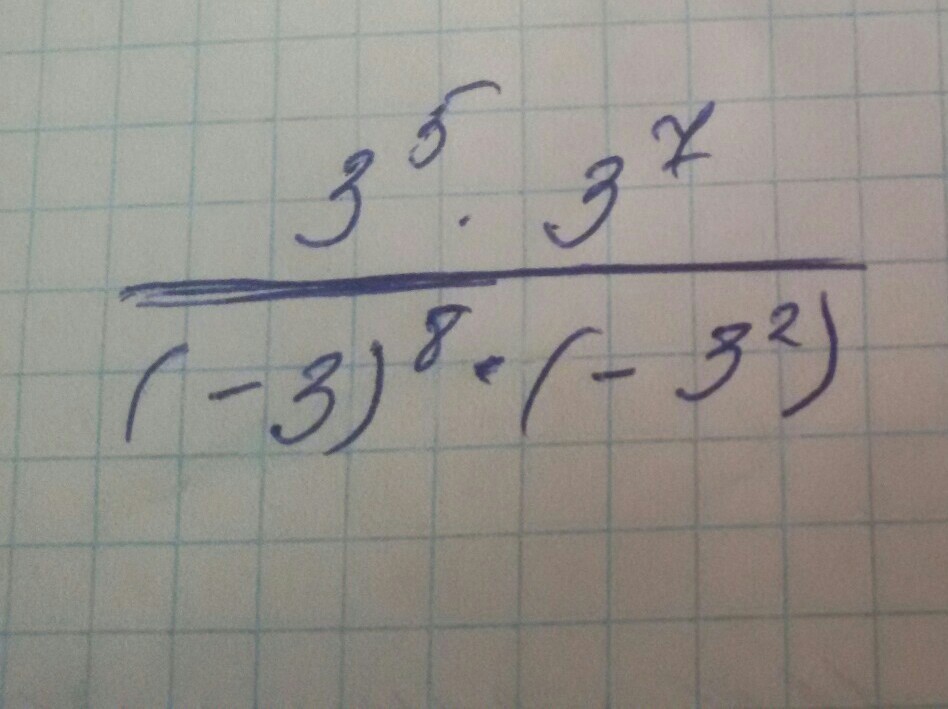 3⁵ · 3⁷
(-3)⁸ · (-3²)